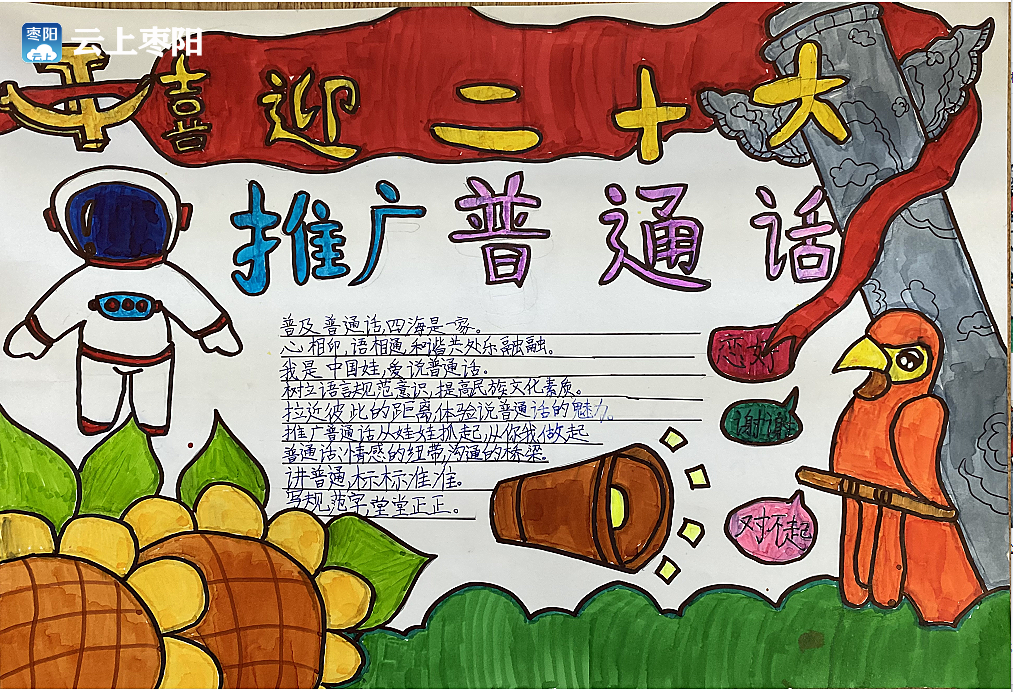 枣阳
云上枣阳
喜迎二十大
推广普通话
普及普通话,四海是一家。
心相印,语相通,和谐共处乐融融。
我是中国娃,爱说普通话。
树立语言规范意识,提高民族文化素质。
拉近彼此的距离体验说普通话的魅力。
推广普通话从娃娃抓起,从你我做起
普通话:情感的纽带,沟通的桥梁。
讲普通,标标准准。
写规范字堂堂正正。
您好
谢谢
对不起